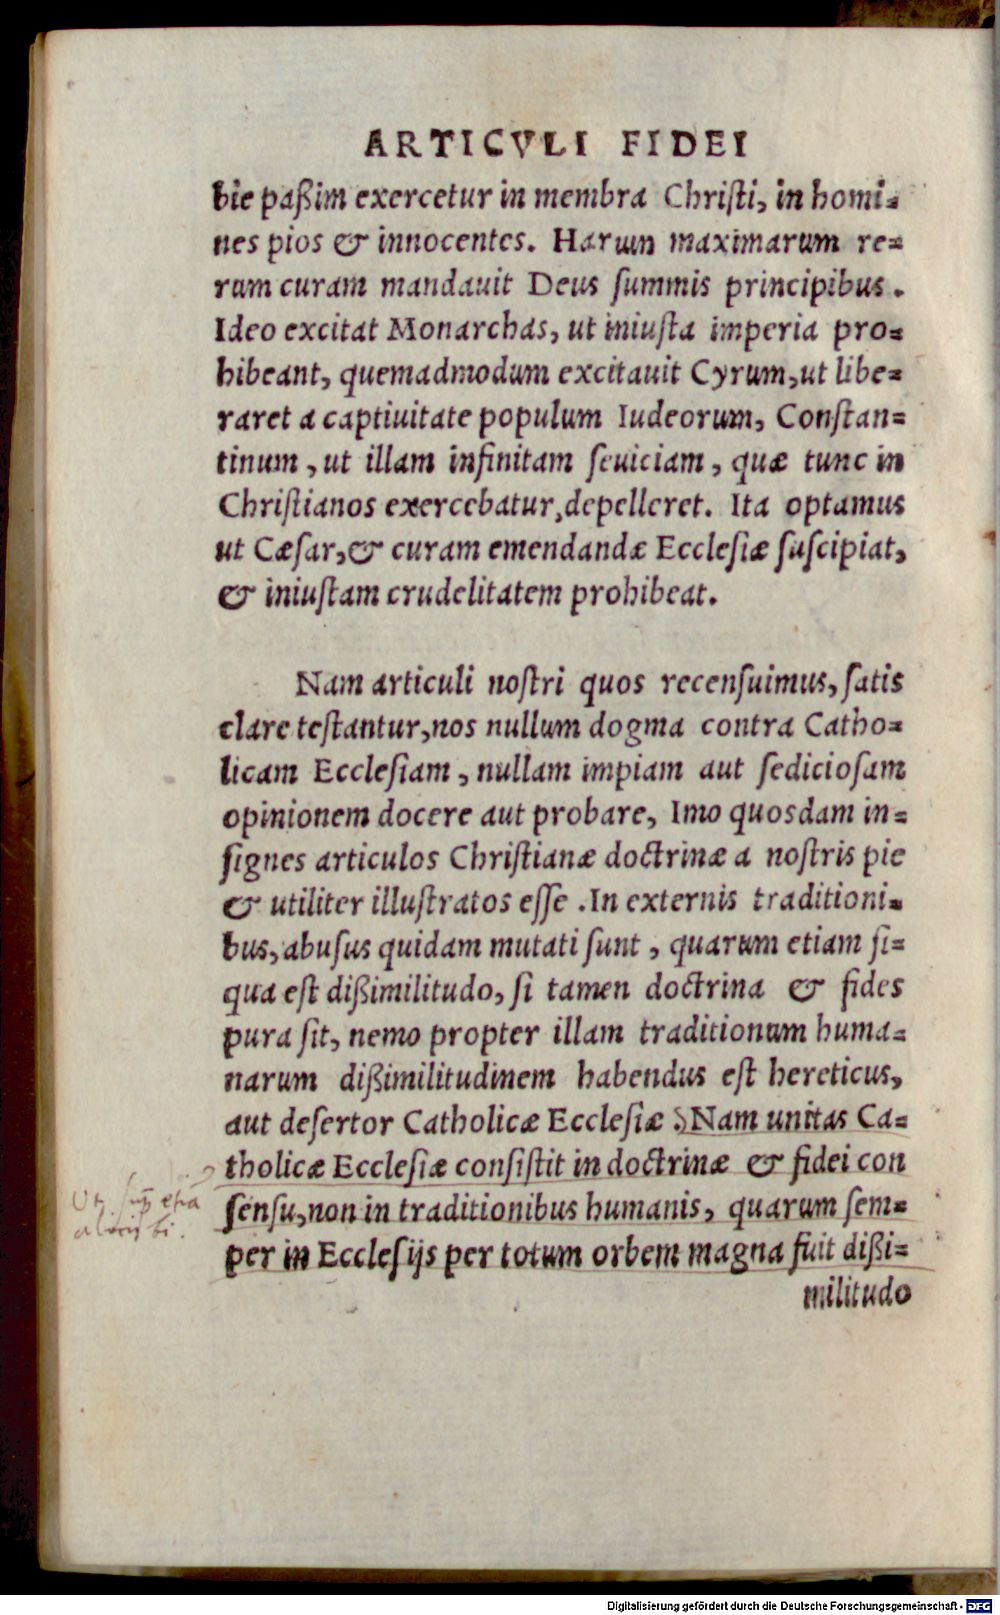 ARTICVLI FIDEI
bie paßim exercetur in membra Chriſti, in homi=
nes pios & innocentes. Harum maximarum re=
rum curam mandauit Deus ſummis principibus.
Ideo excitat Monarchas, ut iniuſta imperia pro=
hibeant, quemadmodum excitauit Cyrum, ut libe=
raret a captiuitate populum Iudeorum, Conſtan=
tinum, ut illam infinitam ſeuiciam, quæ tunc in
Chriſtianos exercebatur, depelleret. Ita optamus
ut Cæſar, & curam emendandæ Eccleſiæ ſuſcipiat,
& iniuſtam crudelitatem prohibeat.
Nam articuli noſtri quos recenſuimus, ſatis
clare teſtantur, nos nullum dogma contra Catho=
licam Eccleſiam, nullam impiam aut ſedicioſam
opinionem docere aut probare, Imo quosdam in=
ſignes articulos Chriſtianæ doctrinæ a noſtris pie
& utiliter illuſtratos eſſe. In externis traditioni=
bus, abuſus quidam mutati ſunt, quarum etiam ſi=
qua eſt dißimilitudo, ſi tamen doctrina & fides
pura ſit, nemo propter illam traditionum huma=
narum dißimilitudinem habendus eſt hereticus,
aut deſertor Catholicæ Eccleſiæ. Nam unitas Ca=
tholicæ Eccleſiæ conſiſtit in doctrinæ & fidei con
ſenſu, non in traditionibus humanis, quarum ſem=
per in Eccleſijs per totum orbem magna fuit dißi=
militudo
Digitalisierung gefördert durch die Deutsche Forschungsgemeinschaft - DFG